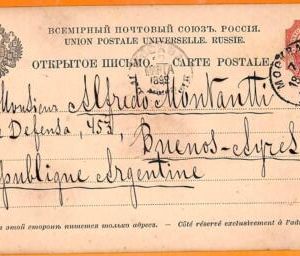 ВСЕМІРНЫЙ ПОЧТОВЫЙ СОЮЗ. РОССІЯ.
UNION POSTALE UNIVERSELLE. RUSSIE.
ОТКРЫТОЕ ПИСЬМО. CARTE POSTALE.
Monsieur Alfredo Montautti
Defensa, 453,
Buenos-Ayres
République Argentine
на этой сторонѣ пишется только адресъ. — Côté réservé exclusivement à